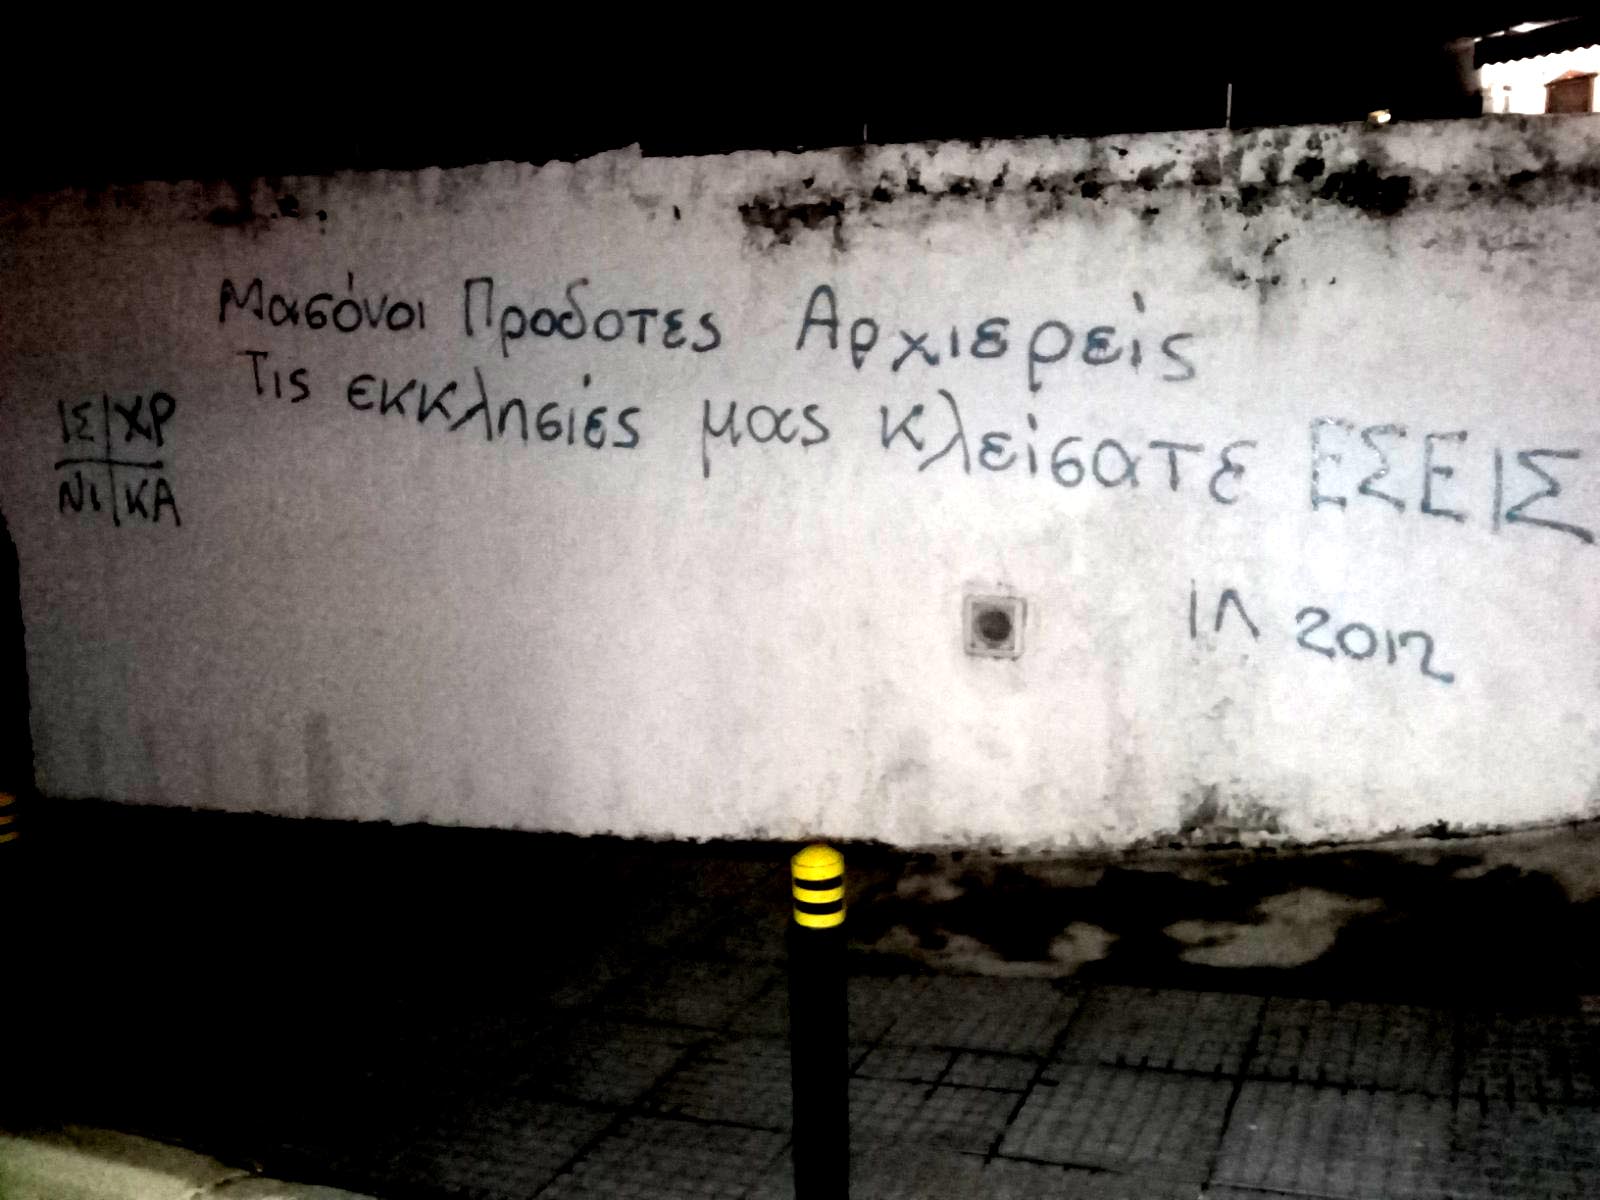 Μασόνοι Προδοτες Αρχιερείς
Τις εκκλησιές μας κλείσατε ΕΣΕΙΣ
ΙΣ ΧΡ
ΝΙ ΚΑ
ΙΛ 2012